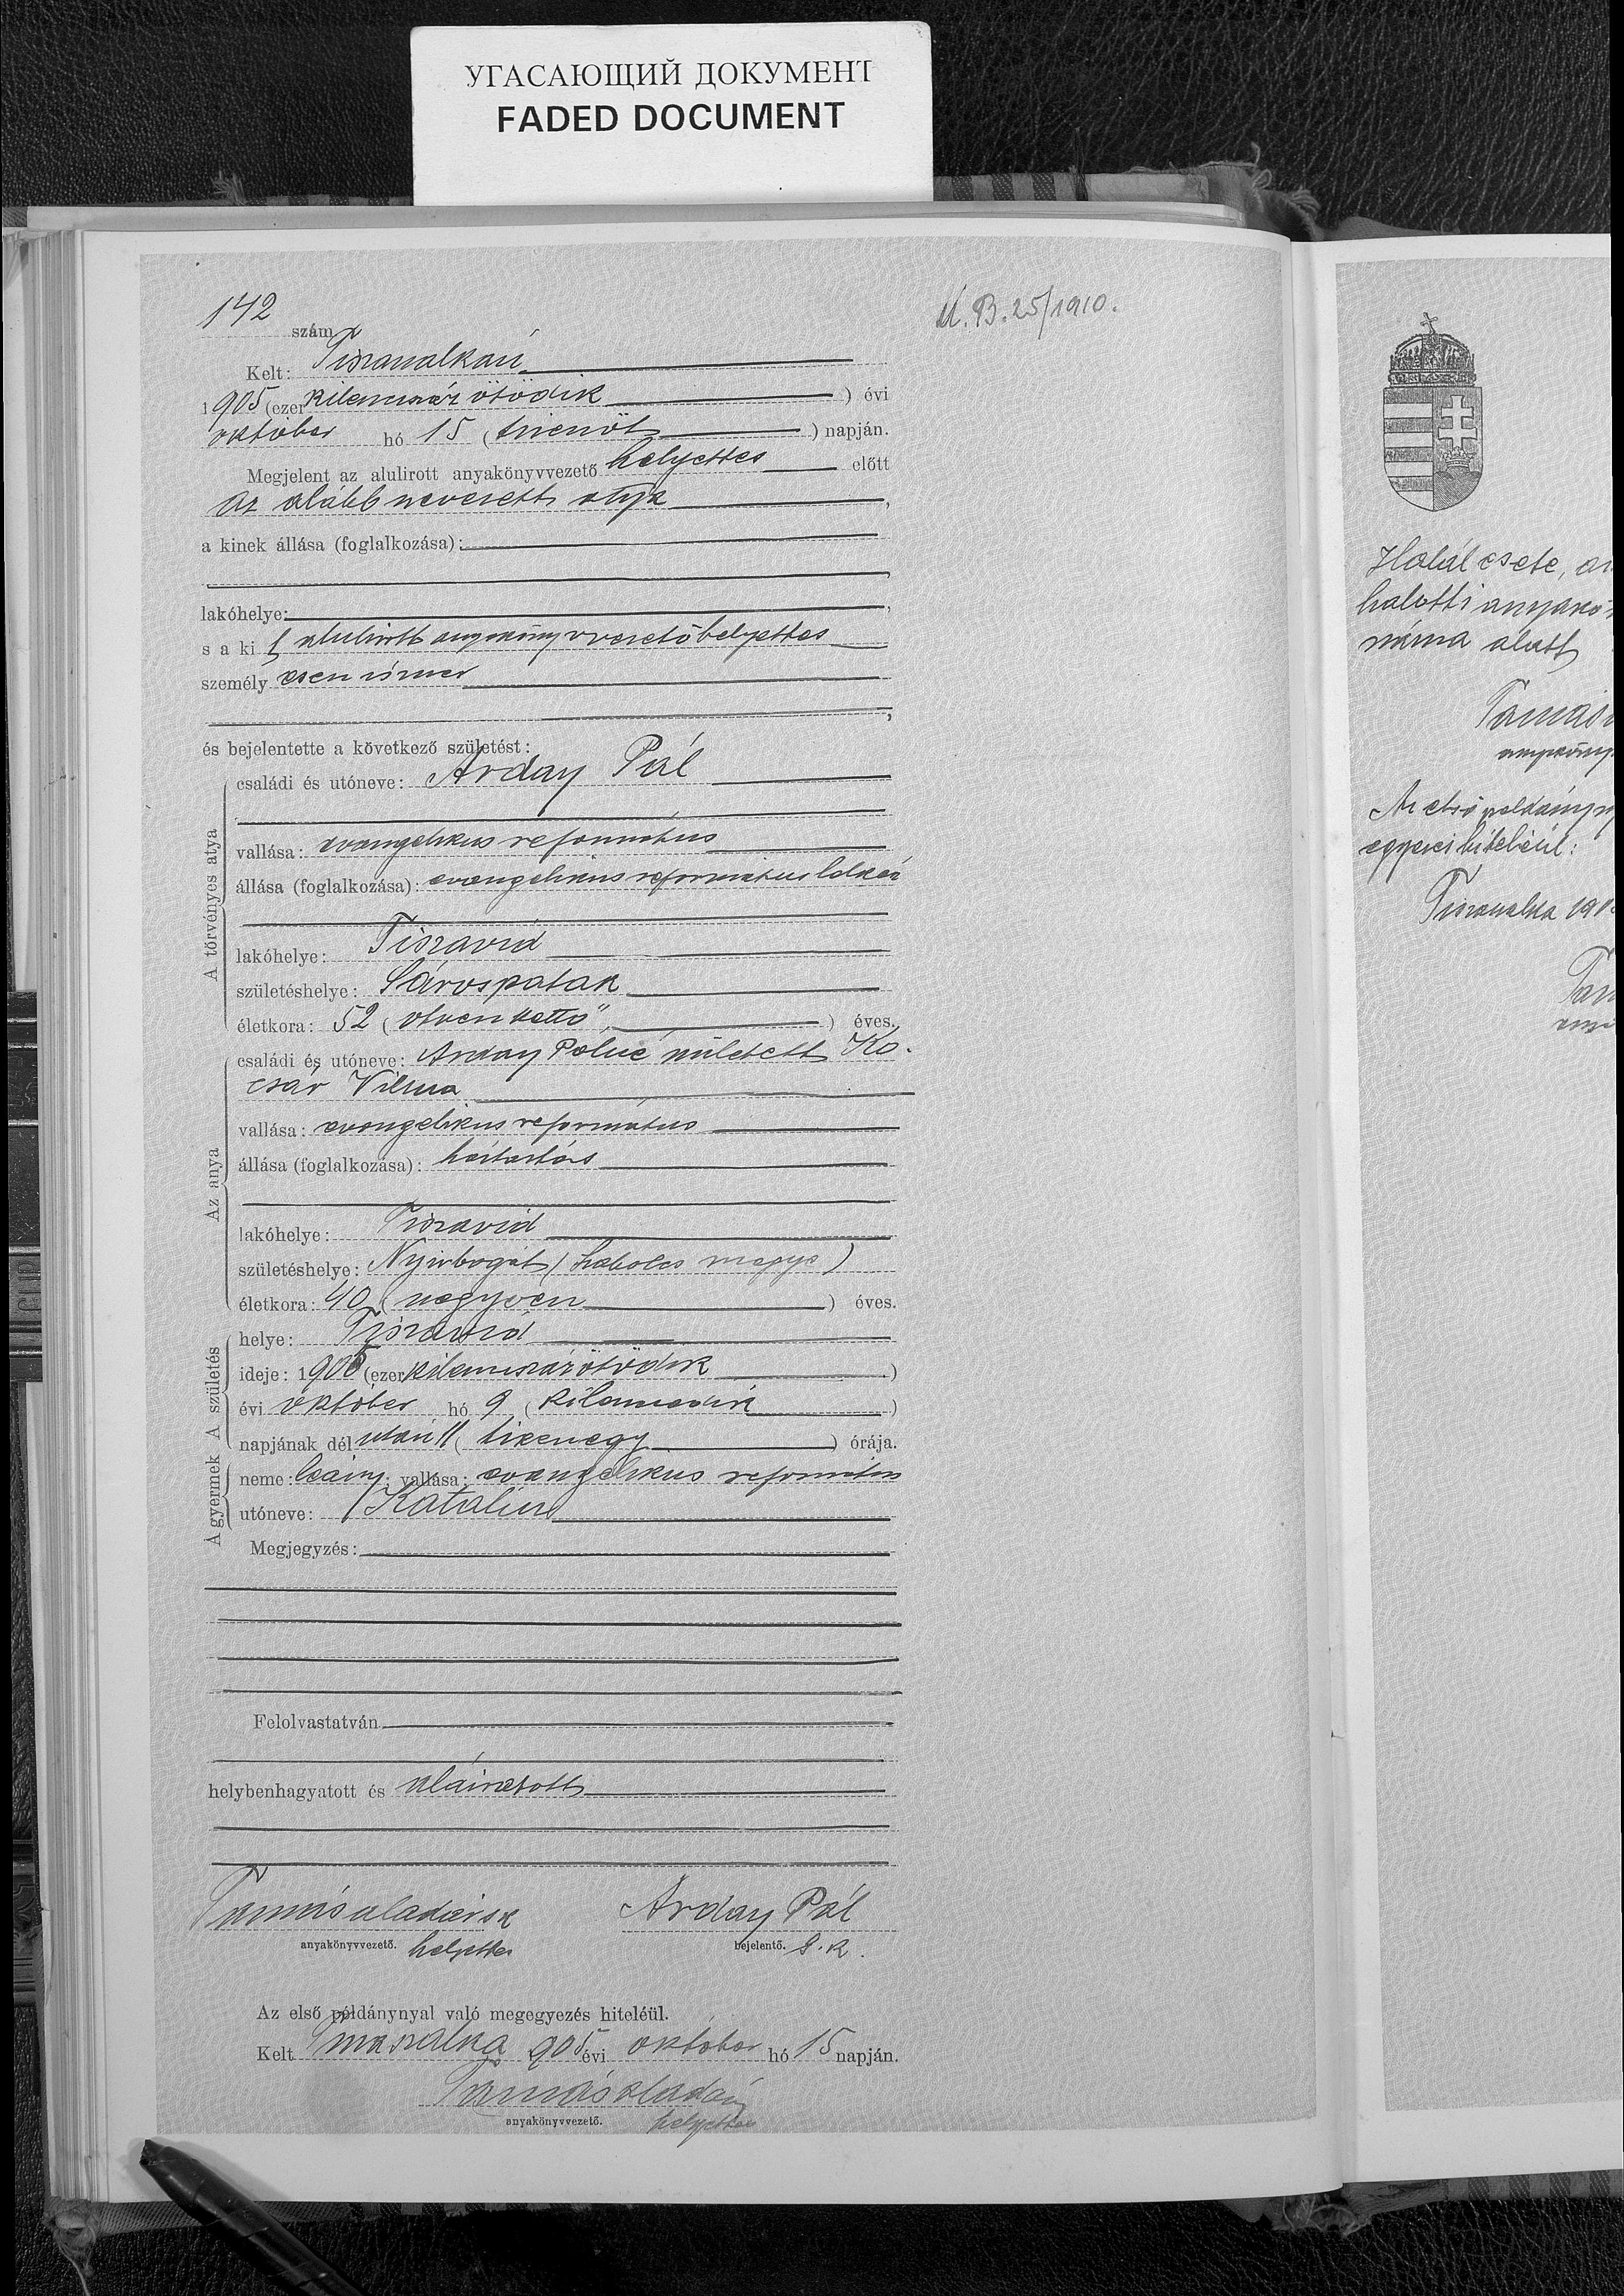 УГАСАЮЩИЙ ДОКУМЕНТ
FADED DOCUMENT
142 szám
U. B. 25/1910.
Kelt: Tiszaujlakán
1905 (ezer kilenczszáz ötödik) évi
október hó 15 (tizenöt) napján.
Megjelent az alulirott anyakönyvvezető helyettes előtt
az alább nevezett atya,
a kinek állása (foglalkozása):
lakóhelye:
s a kit alulirott anyakönyvvezetőhelyettes
személyesen ismer
és bejelentette a következő születést:
A törvényes atya
családi és utóneve: Arday Pál
vallása: evangelikus református
állása (foglalkozása): evangelikus református lelkész
lakóhelye: Tiszavid
születéshelye: Sárospatak
életkora: 52 (ötvenkettő) éves.
Az anya
családi és utóneve: Arday Pálné született Ko-
csár Vilma
vallása: evangelikus református
állása (foglalkozása): háztartás
lakóhelye: Tiszavid
születéshelye: Nyirbogát (Szabolcs megye)
életkora: 40 (negyven) éves.
A születés
helye: Tiszavid
ideje: 1905 (ezer kilenczszáz ötödik)
évi október hó 9 (kilenczedik)
napjának délután 11 (tizenegy) órája.
A gyermek
neme: leány; vallása: evangelikus református
utóneve: Katalin
Megjegyzés:
Felolvastatván
helybenhagyatott és aláiratott
Tamás Aladár sk Arday Pál
anyakönyvvezető. helyettes bejelentő. s. k.
Az első példánynyal való megegyezés hiteléül.
Kelt 905 évi október hó 15 napján.
Tamás Aladár
anyakönyvvezető. helyettes
Halál esete, a
halotti anyakö
száma alatt
Tamás
anyakönyv
Az első példányny
egyezés hiteléül:
Tiszaujlak 19
Tam